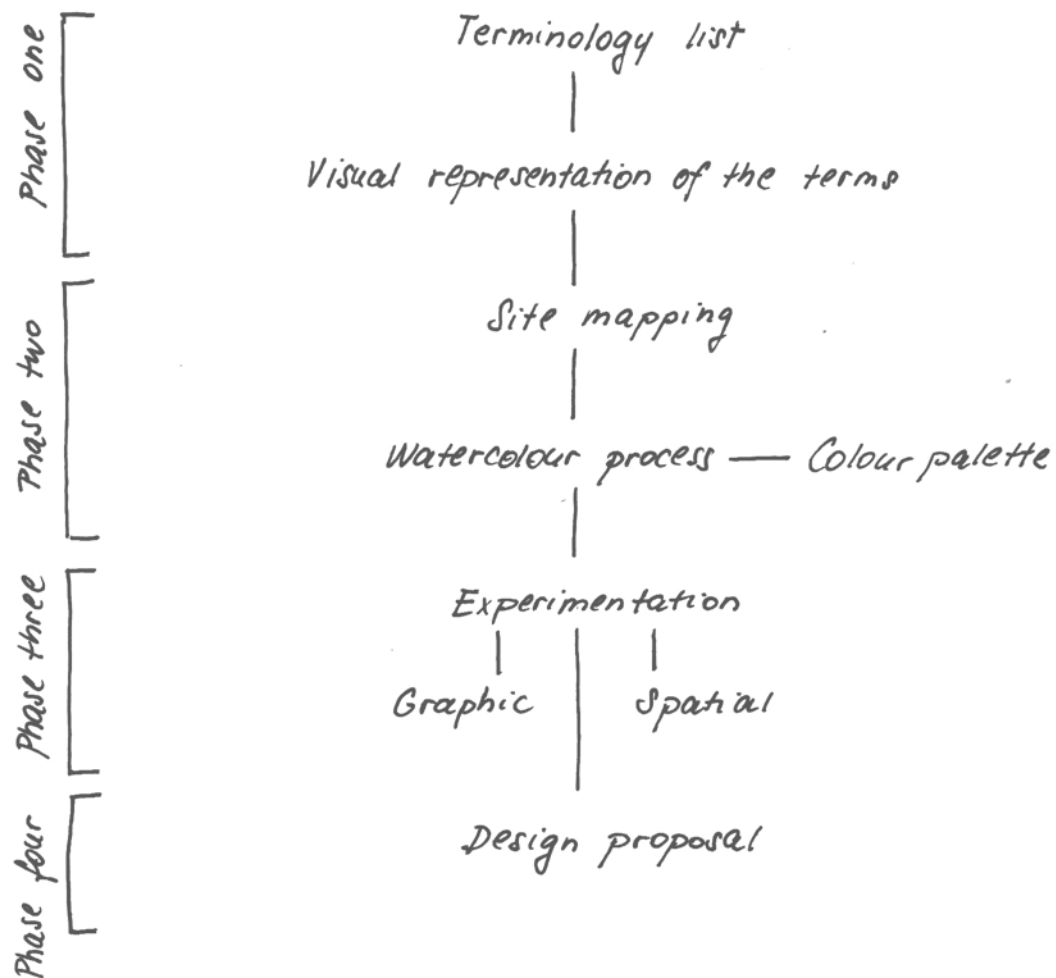 Phase one
Terminology list
Visual representation of the terms
Phase two
Site mapping
Watercolour process — Colour palette
Phase three
Experimentation
Graphic
Spatial
Phase four
Design proposal